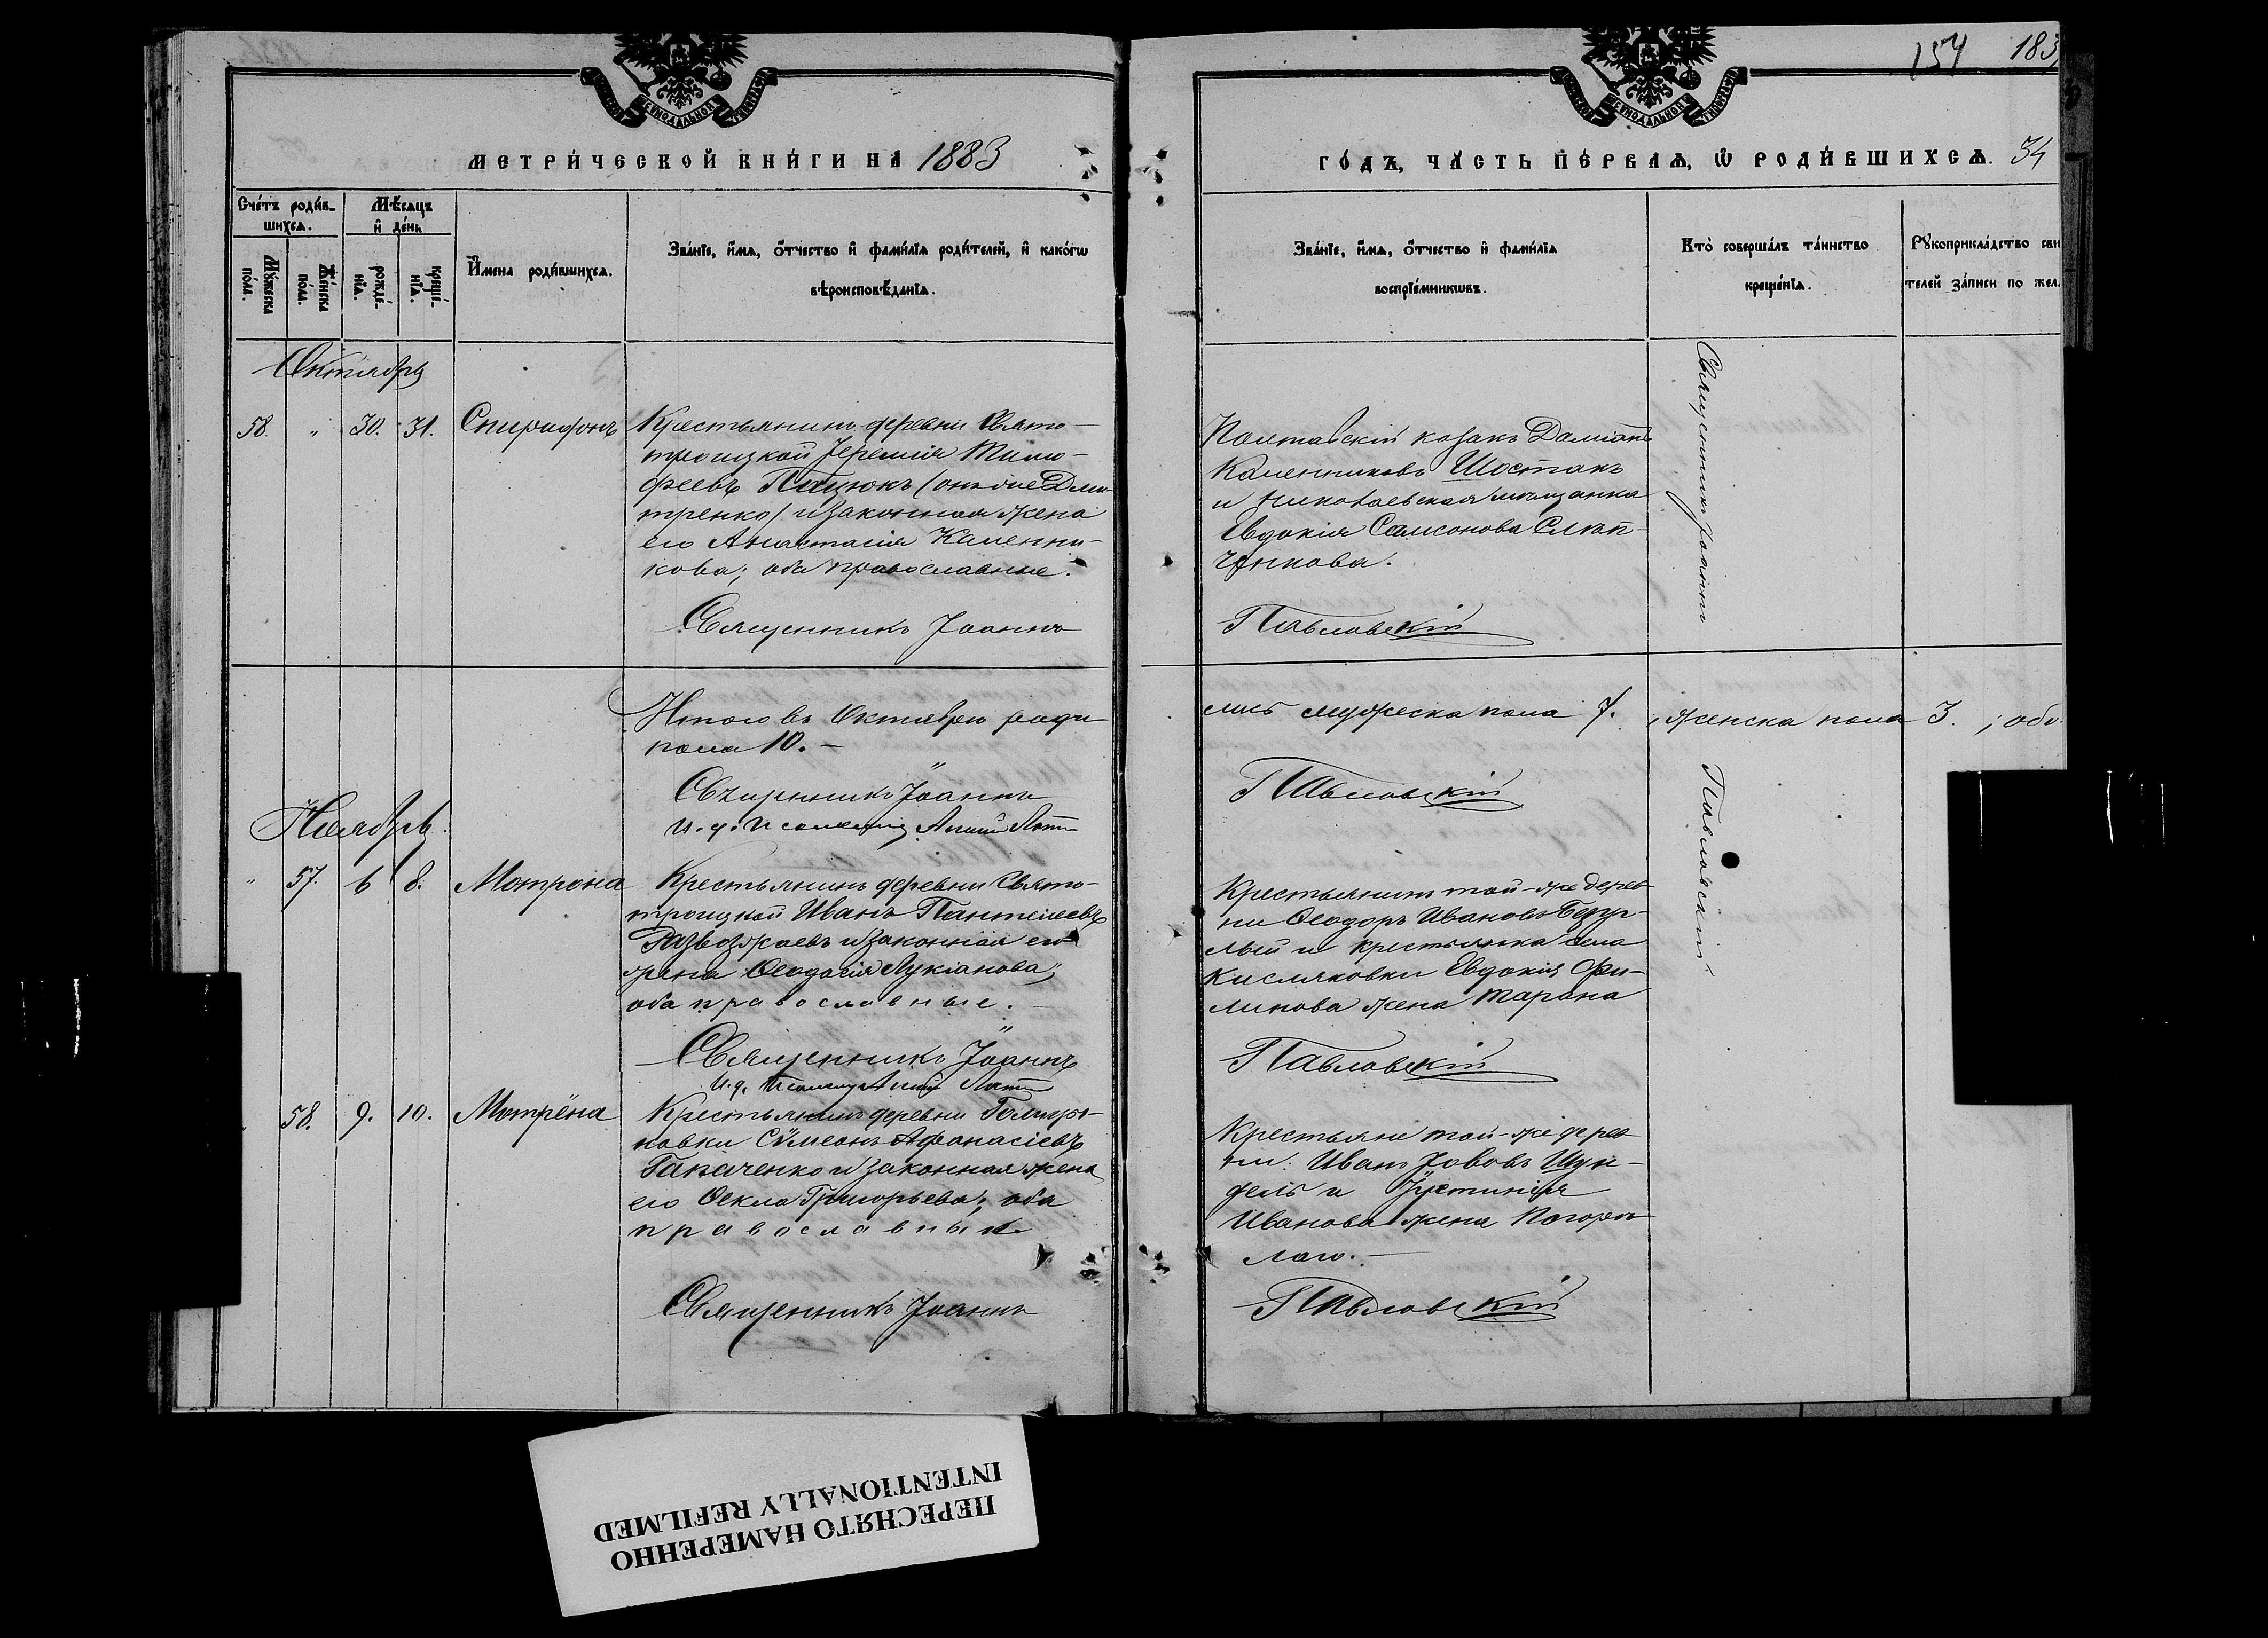 154 183
МЕТРИ́ЧЕСКОЙ КНИ́ГИ НА 1883
ГО́ДЪ, ЧА́СТЬ ПЕ́РВАѦ, Ѡ҆ РОДИ́ВШИХСѦ. 54
Сче́тъ роди́в-
шихсѧ.
Мꙋ́жеска по́ла.
Же́нска по́ла.
Мѣ́сяцъ
и҆ де́нь
рожде́-
нїѧ.
креще́-
нїѧ.
И҆мена роди́вшихсѧ.
Зва́нїе, и҆́мѧ, ѻ҆́тчество и҆ фами́лїѧ роди́телей, и҆ како́гѡ
вѣроисповѣ́данїѧ.
Зва́нїе, и҆́мѧ, ѻ҆́тчество и҆ фами́лїѧ
воспрїе́мникѡвъ.
Кто̀ соверша́лъ та́инство
креще́нїѧ.
Рꙋкоприкла́дство сви
телей за́писи по жел.
Октябрь
58. " 30. 31. Спиридонъ
Крестьянинъ деревни Свято-
троицкой Іеремія Тимо-
феевъ Пацюкъ (онъ же Дми-
тренко) и законная жена
его Анастасія Каленни-
кова; оба православные.
Священникъ Іоаннъ
Полтавскій козакъ Даміанъ
Каленниковъ Шостакъ
и Николаевская мѣщанка
Евдокія Самсонова
чонкова.
Павловскій
Священникъ Іоаннъ
Итого въ Октябрѣ роди
лись мужеска пола 7. , женска пола 3. ; обо
пола 10. -
Священникъ Іоаннъ
И. д. Псаломщ.
Павловскій
Павловскій
Ноябрь.
" 57. 6 8. Мотрона
Крестьянинъ деревни Свято-
троицкой Иванъ Пантелеевъ
Развозжаевъ и законная его
жена Ѳеодосія Лукіанова;
оба православные.
Священникъ Іоаннъ
И. д. Псаломщ.
Крестьянинъ той-же дерев
ни Ѳеодоръ Ивановъ
лый и крестьянка села
Кисляковки Евдокія Фи-
липова жена Тарана
Павловскій
58. 9. 10. Мотрона
Крестьянинъ деревни
новки Сѵмеонъ Афанасіевъ
Ганаченко и законная жена
его Ѳекла Григорьева; оба
православные
Священникъ Іоаннъ
Крестьяне той-же дерев
ни: Иванъ Іововъ
дель и Іустинія
Иванова жена Погорѣ
лаго. -
Павловскій
ПЕРЕСНЯТО НАМЕРЕННО
INTENTIONALLY REFILMED